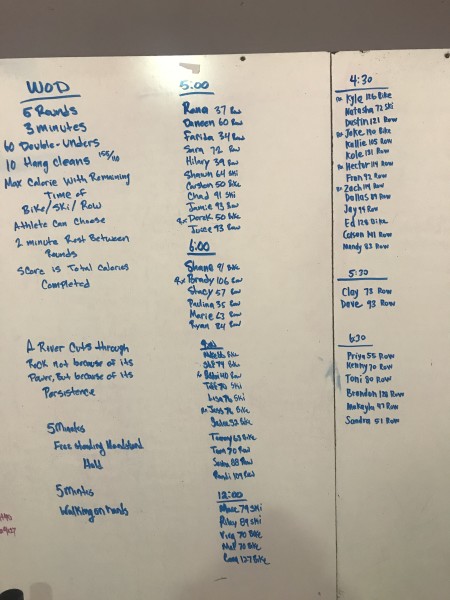 WOD
5 Rounds
3 minutes
60 Double-Unders
10 Hang Cleans 155/110
Max Calorie With Remaining
Time of
Bike/Ski/Row
Athlete Can Choose
2 minute Rest Between
Rounds
Score is Total Calories
Completed
A River Cuts through
Rock not because of its
Power, But because of its
Persistence
5 Minutes
Free standing Handstand
Hold
5 Minutes
Walking on Hands
5:00
Rana 37 Row
Daneen 60 Row
Farida 34 Row
Sara 72 Row
Hilary 39 Row
Shawn 64 Ski
Carson 50 Bike
Chad 91 Ski
Jamie 93 Row
Rx Derek 50 Bike
Juice 93 Row
6:00
Shana 91 Bike
Rx Brady 106 Row
Stacy 57 Row
Paulina 35 Row
Marie 63 Row
Ryan 84 Row
74 Bike
40 Row
Todd 70 Ski
Lisa 76 Ski
Rx Jess 76 Bike
52 Bike
Tammy 63 Bike
Tom 70 Row
88 Row
109 Row
12:00
79 Ski
Riley 89 Ski
70 Bike
Mel 70 Bike
127 Bike
4:30
Rx Kyle 126 Bike
Natasha 72 Ski
Dustin 121 Row
Rx Jake 140 Bike
Kallie 105 Row
Kole 131 Row
Rx Hector 114 Row
Fran 92 Row
Rx Zach 114 Row
Dallas 89 Row
Jay 99 Row
Ed 128 Bike
Carson 141 Row
Mandy 83 Row
5:30
Clay 73 Row
Dave 93 Row
6:30
Priya 55 Row
Kenny 70 Row
Toni 80 Row
Brandon 128 Row
Makayla 97 Row
Sandra 51 Row